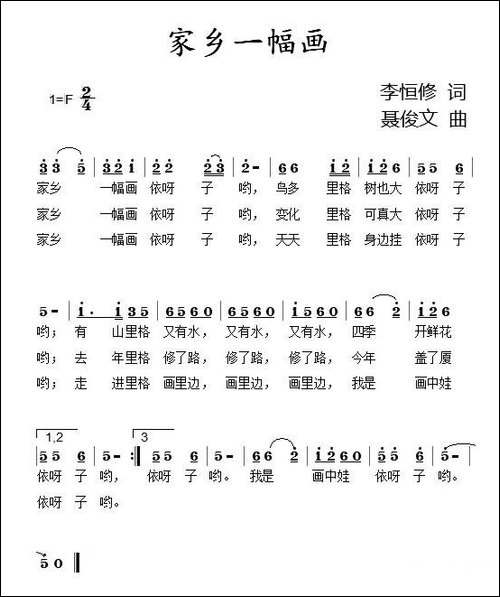 家乡一幅画
1=F 2/4
李恒修 词
聂俊文 曲
3 3 5 | 3 2 1 | 2 2 2 3 | 2 - | 6 6 1 2 | 1 2 6 | 5 5 6 |
家乡 一幅画 依呀 子 哟， 鸟多 里格 树也大 依呀 子
家乡 一幅画 依呀 子 哟， 变化 里格 可真大 依呀 子
家乡 一幅画 依呀 子 哟， 天天 里格 身边挂 依呀 子
5 - | 1 . 1 3 5 | 6 5 6 0 | 6 5 6 0 | 6 5 6 0 | 6 6 2 | 1 2 6
哟； 有 山里格 又有水， 又有水， 又有水， 四季 开鲜花
哟； 去 年里格 修了路， 修了路， 修了路， 今年 盖了厦
哟； 走 进里格 画里边， 画里边， 画里边， 我是 画中娃
1,2 3
5 5 6 | 5 - :| 5 5 6 | 5 - | 6 6 2 | 1 2 6 0 | 5 5 6 | 5 - |
依呀 子 哟， 依呀 子 哟。 我是 画中娃 依呀 子 哟。
依呀 子 哟。
5 0